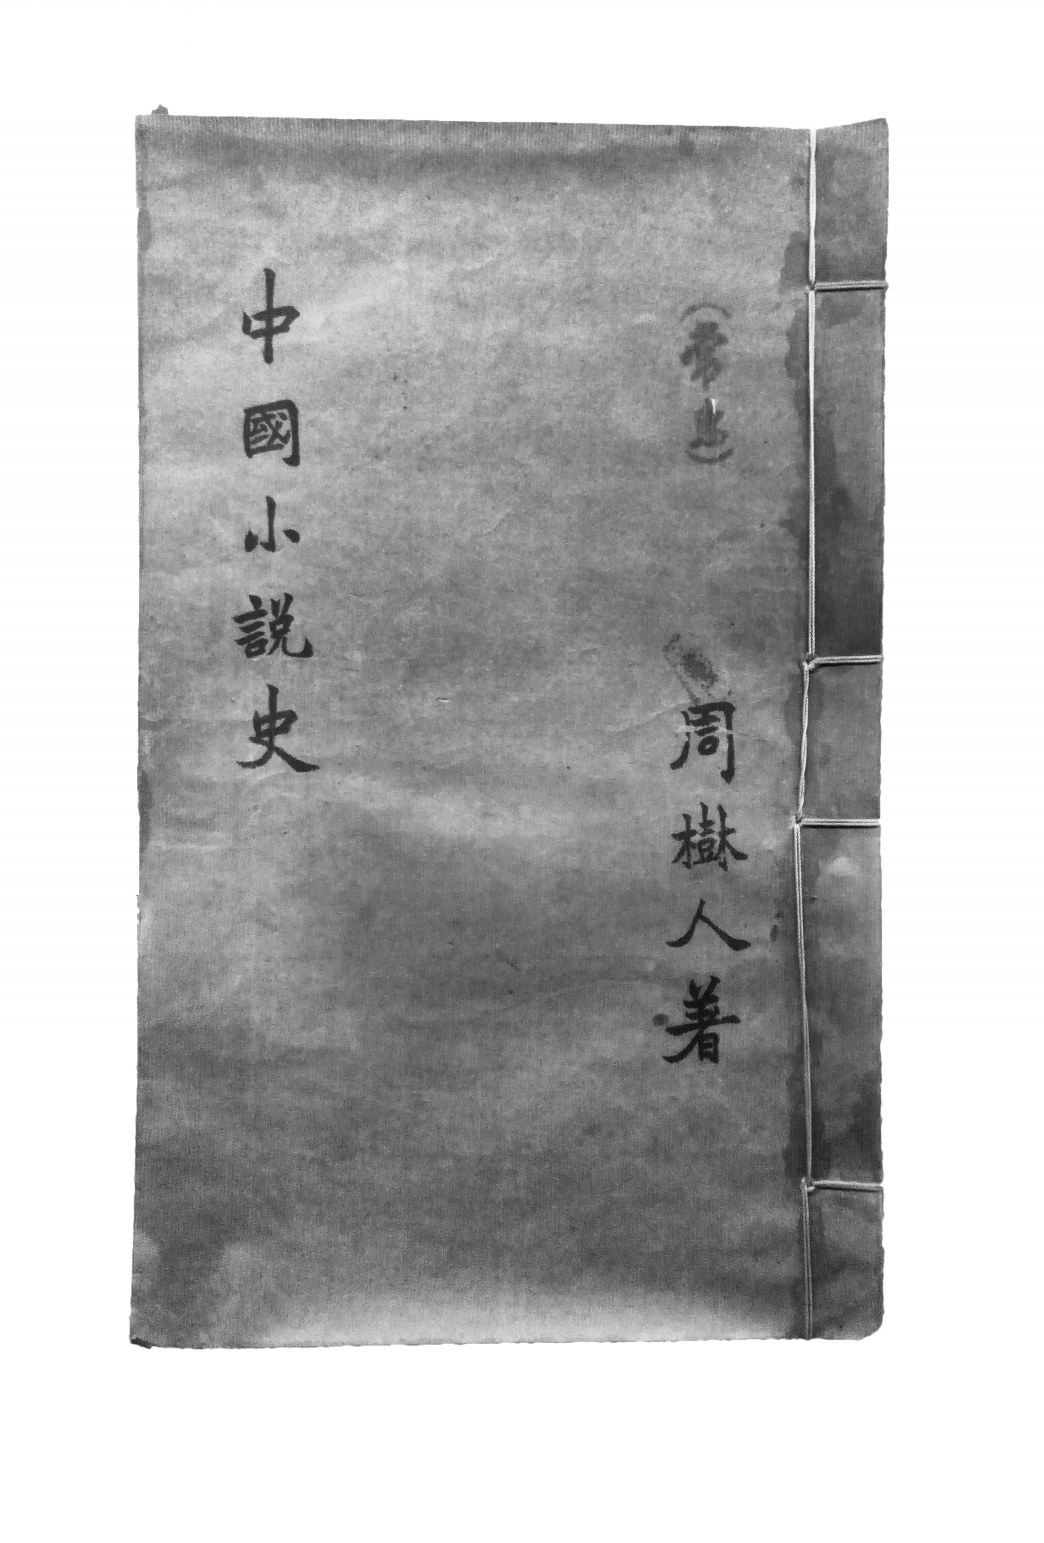 周樹人著
中國小說史